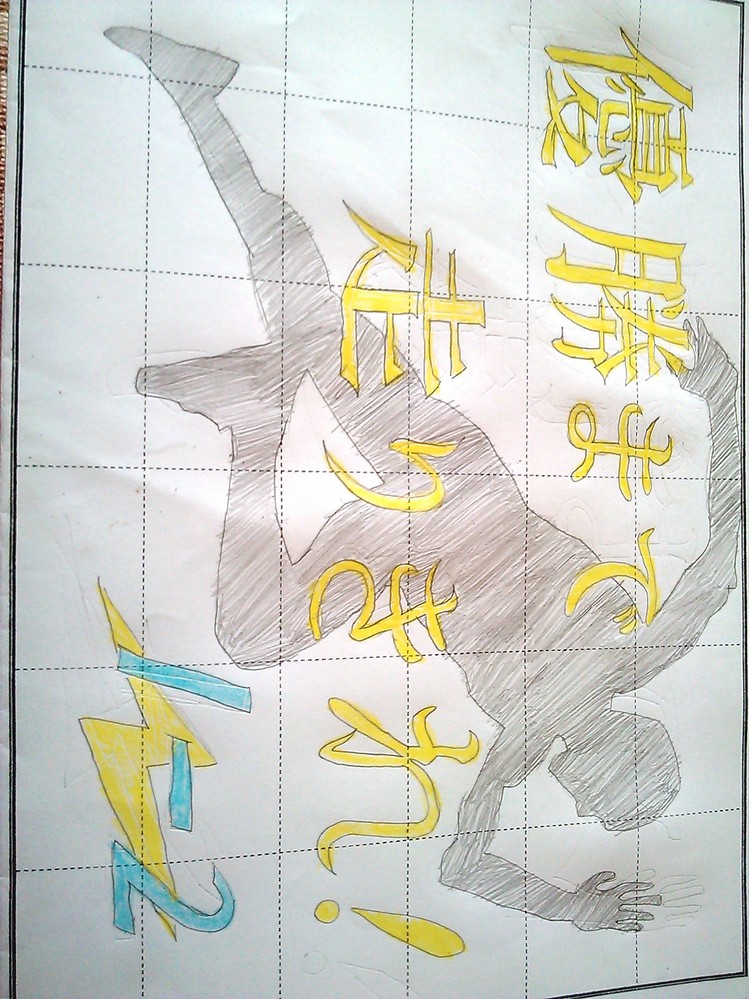 優勝まで
走りきれ!
1-2